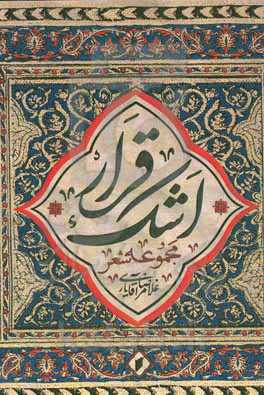 اشک قرار
مجموعه شعر
غلامرضا آقایار